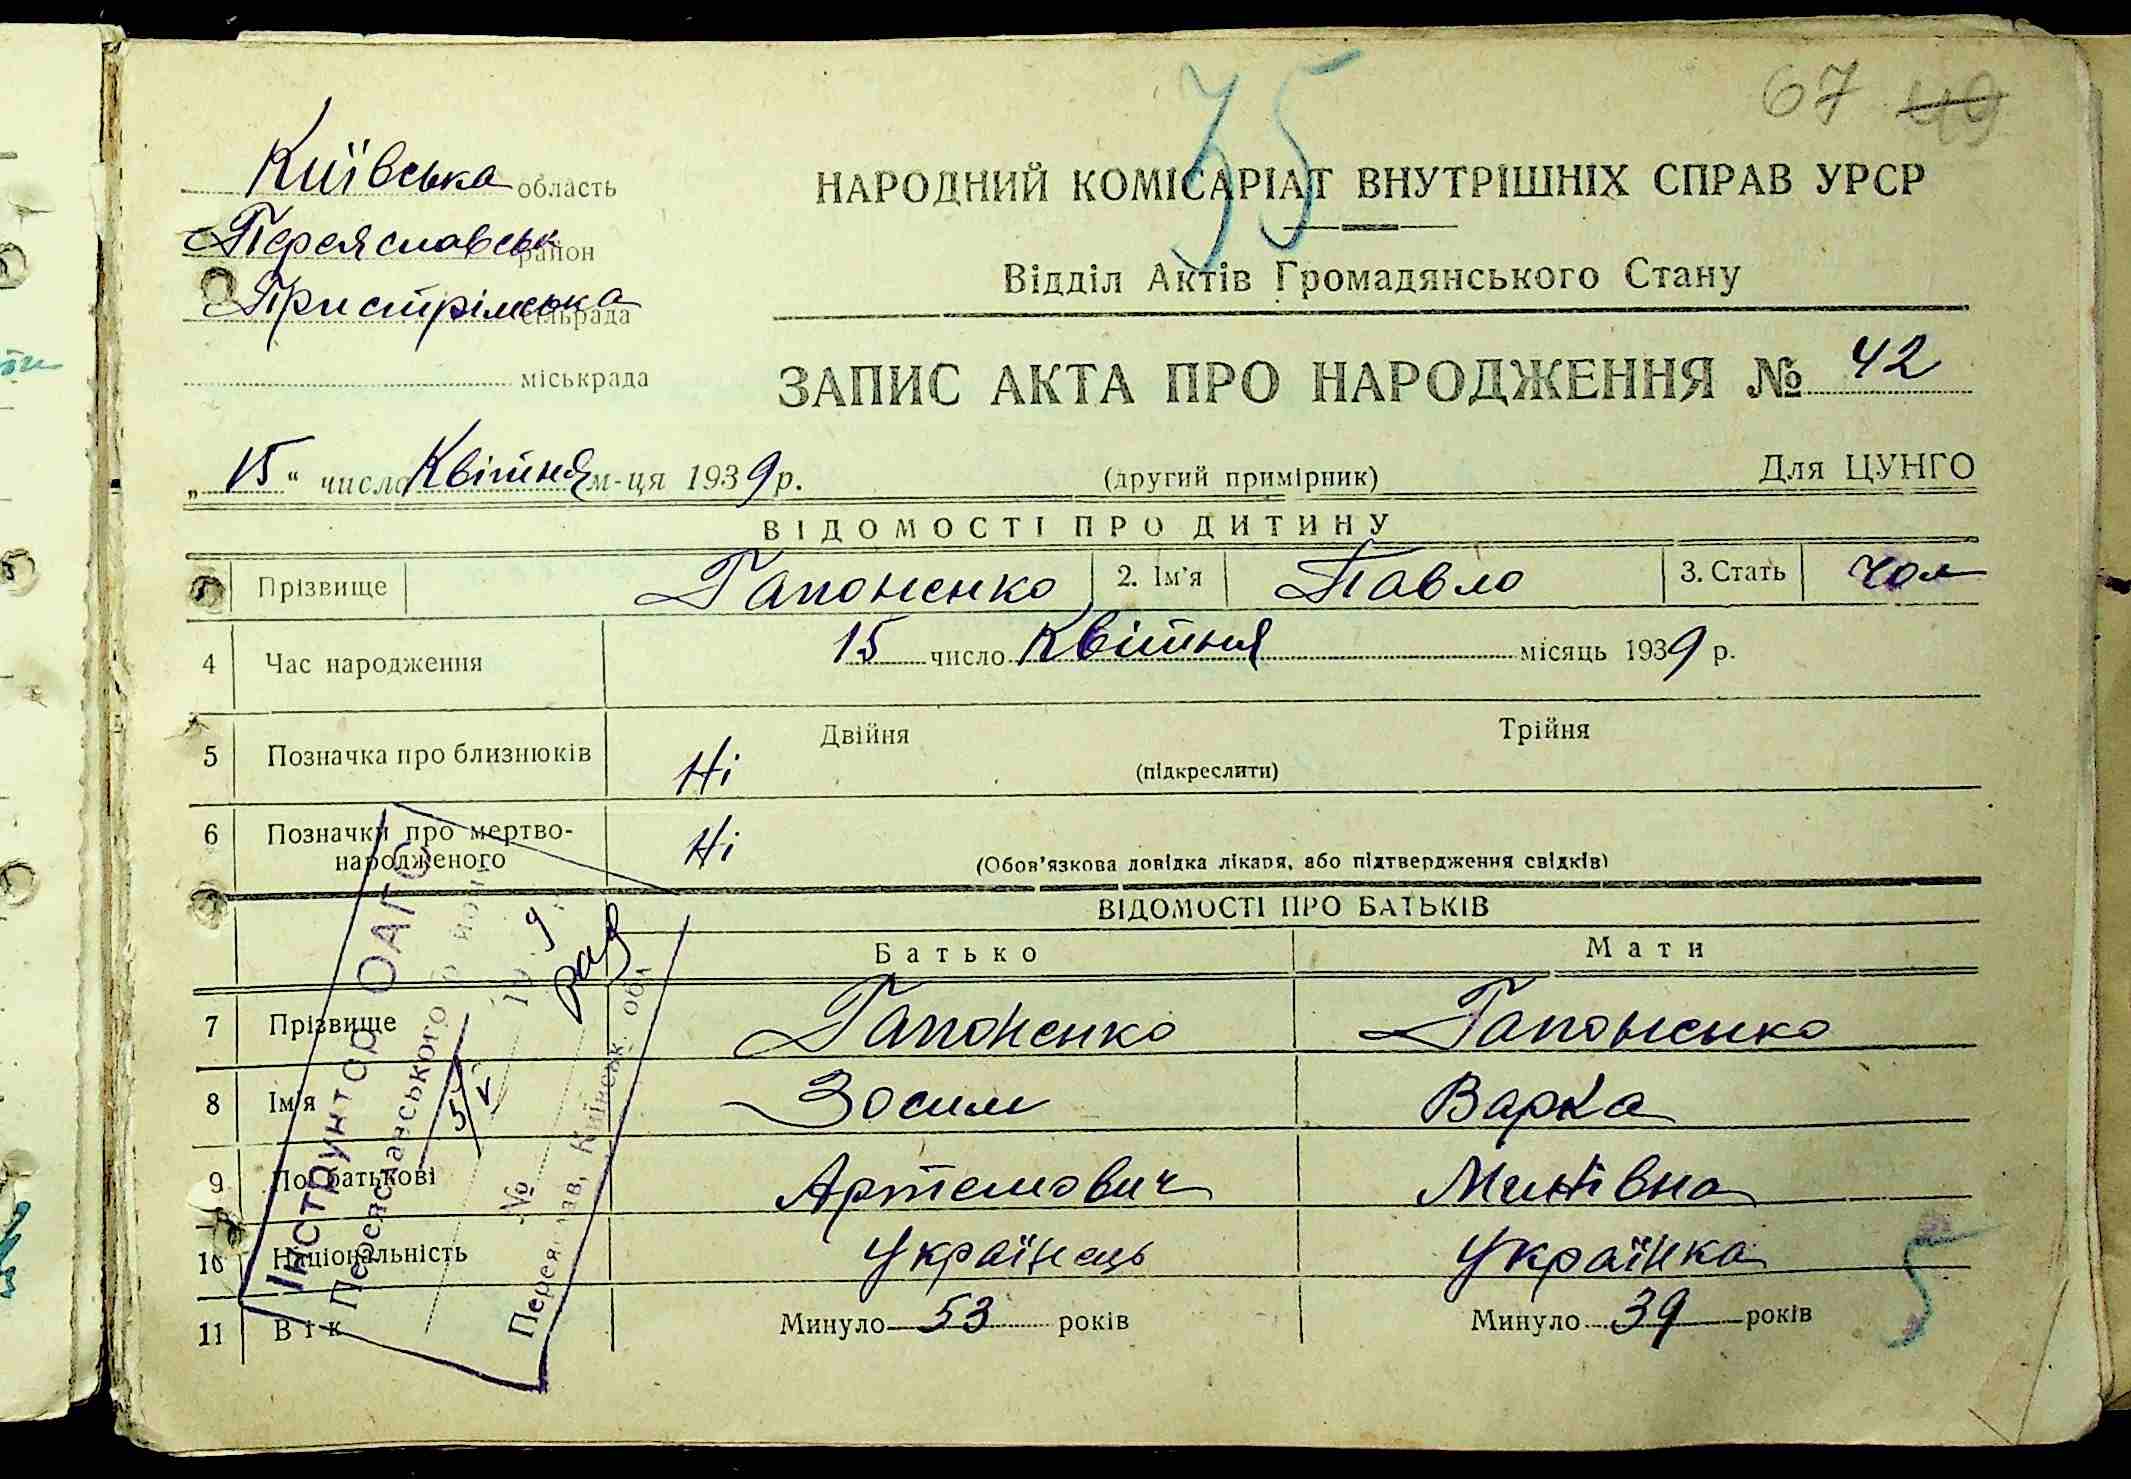 67 49
35
Київська область
Переяславськ район
Пристрімська сільрада
міськрада
НАРОДНИЙ КОМІСАРІАТ ВНУТРІШНІХ СПРАВ УРСР
Відділ Актів Громадянського Стану
ЗАПИС АКТА ПРО НАРОДЖЕННЯ № 42
„15“ число Квітня м-ця 1939 р.
(другий примірник)
Для ЦУНГО
ВІДОМОСТІ ПРО ДИТИНУ
Прізвище Гапоненко 2. Ім'я Павло 3. Стать чол
4 Час народження 15 число Квітня місяць 1939 р.
5 Позначка про близнюків Ні Двійня Трійня
(підкреслити)
6 Позначки про мертво-
народженого Ні
(Обов'язкова довідка лікаря, або підтвердження свідків)
ВІДОМОСТІ ПРО БАТЬКІВ
Батько Мати
7 Прізвище Гапоненко Гапоненко
8 Ім'я Зосим Варка
9 По батькові Артемович Минівна
10 Національність Українець Українка
11 Вік Минуло 53 років Минуло 39 років
5
Інструктор ОАГС
Переяславського
№